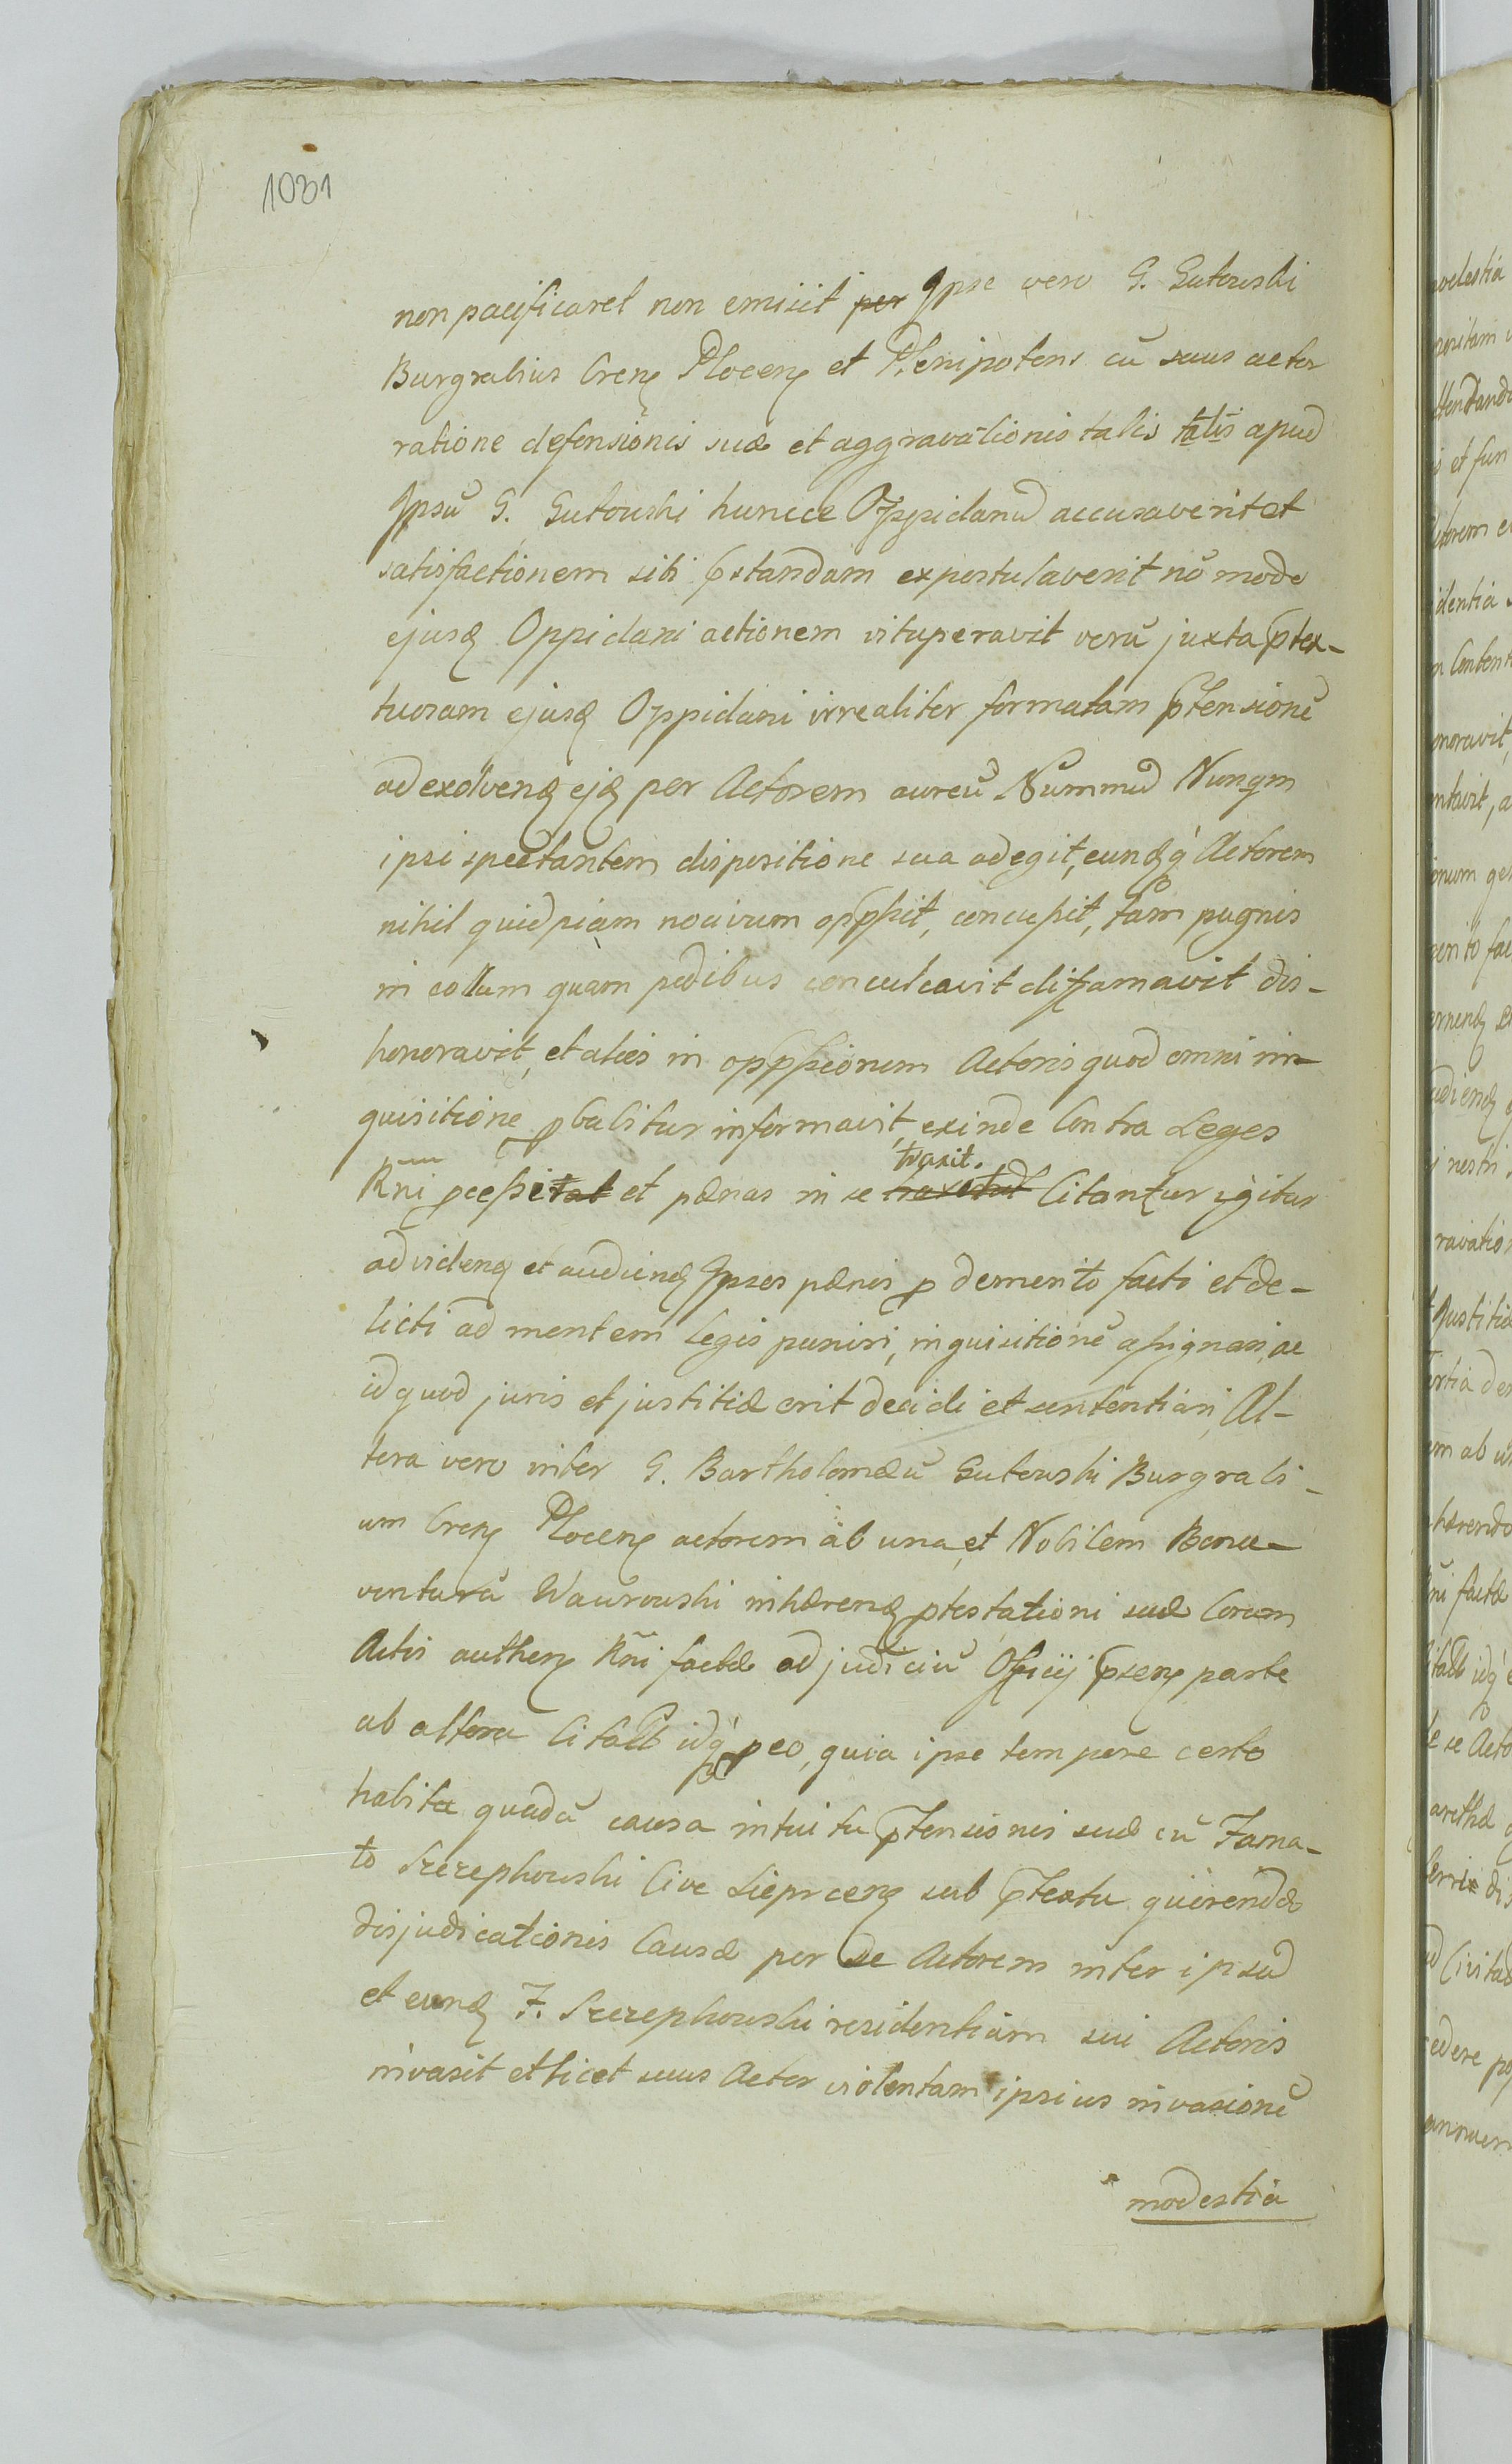 1031
non pacificaret non emisit per Ipse vero G. Gutowski
Burgrabius Cren̄ Plocen̄ et Plenipotens cū suus actor
ratione defensionis suæ et aggravationis talis talis apud
Ipsū G. Gutowski huncce Oppidanū accusaverit et
satisfactionem sibi p̄standam expostulaverit nō modo
ejusd Oppidani actionem vituperavit verū juxta p̄tex-
tuosam ejusd Oppidani irrealiter formatam p̄tensionē
ad exolvend ejd per Actorem aureū Nummū Nunqm
ipsi spectantem dispositione sua adegit, eundq̄ Actorem
nihil quidpiam nocivum opp̄ssit, concussit, tam pugnis
in collum quam pedibus conculcavit diffamavit dis-
honoravit, et alies in opp̄ssionem Actoris quod omni in-
quisitione p̱babitur informavit, exinde Contra Leges
traxit.
Rn̄i p̱cessitat et pænas in se traxerint Citantur igitur
ad vidend et audiend Ipsos pænis p̱ demerito facti et de-
licti ad mentem legis puniri, inquisitionē assignari, ac
id quod juris et justitiæ erit decidi et sententiari, Al-
tera vero inter G. Bartholomæū Gutowski Burgrabi-
um Cren̄ Plocen̄ actorem ab una, et Nobilem Bona-
venturā Wawrowski inhærend p̱testationi suæ Coram
Actis authen̄ Rn̄i factæ ad judiciū Officij p̄sen̄ parte
ab altera Citatt idq̄ p̱ eo, quia ipse tempore certo
habita quadā causa intuitu p̄tensionis suæ cū Fama-
to Szczepkowski Cive Sieprcen̄ sub p̄textu quærendæ
disjudicationis Causæ per se Actorem inter ipsū
et eund F. Szczepkowski residentiam sui Actoris
invasit et licet suus Actor violentam ipsius invasionē
modestia